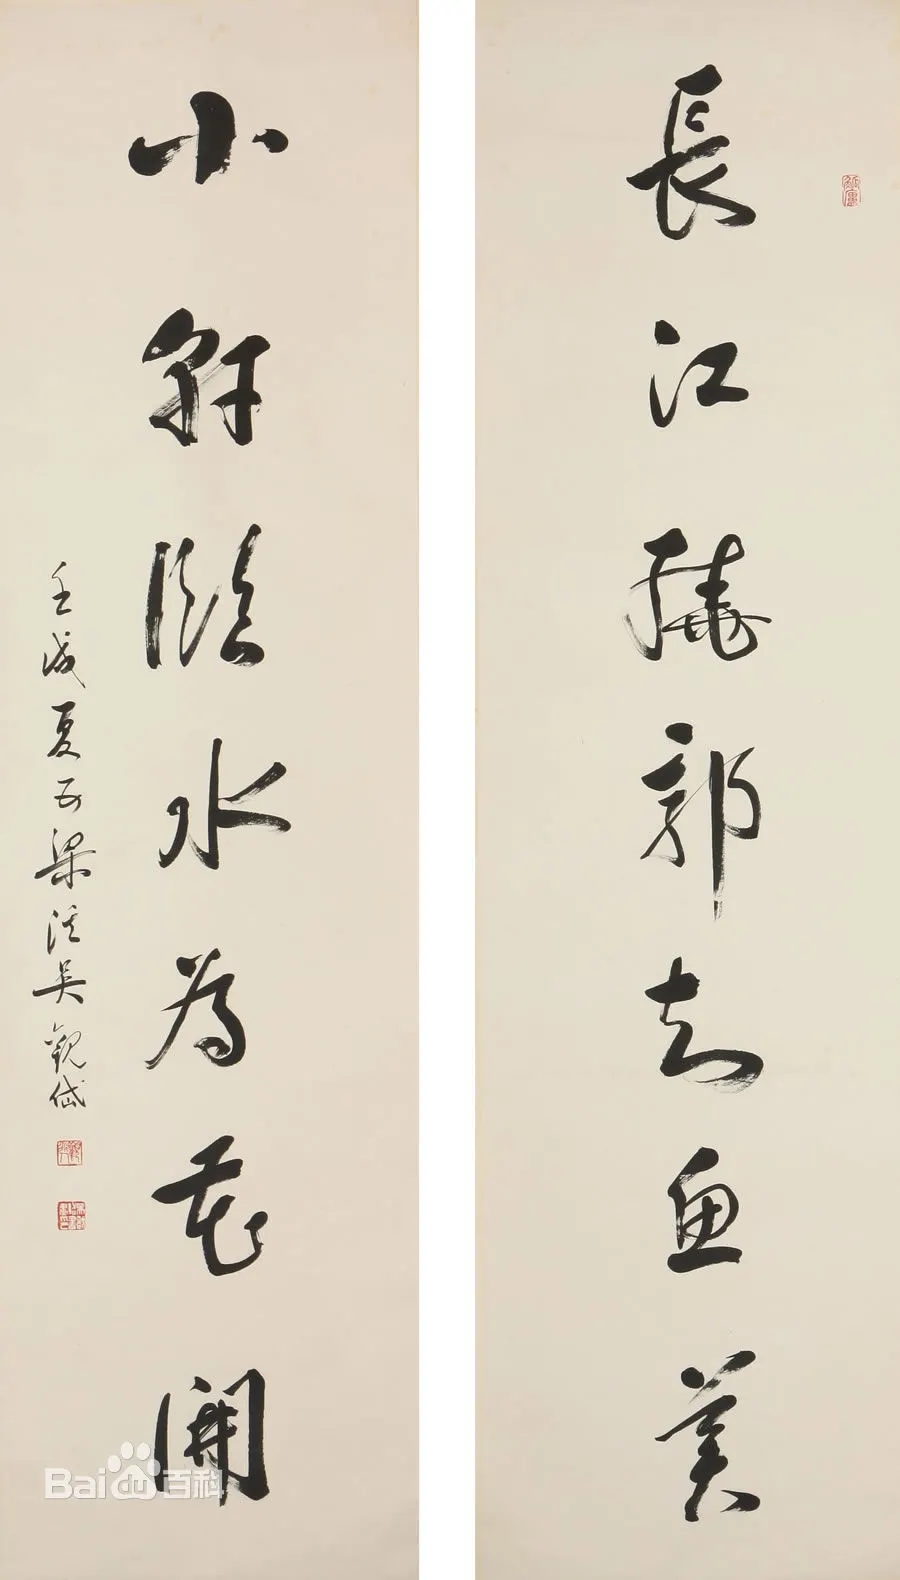 長江繞郭知魚美
小軒臨水為花開
壬戌夏五梁溪吳觀岱
Bai百科